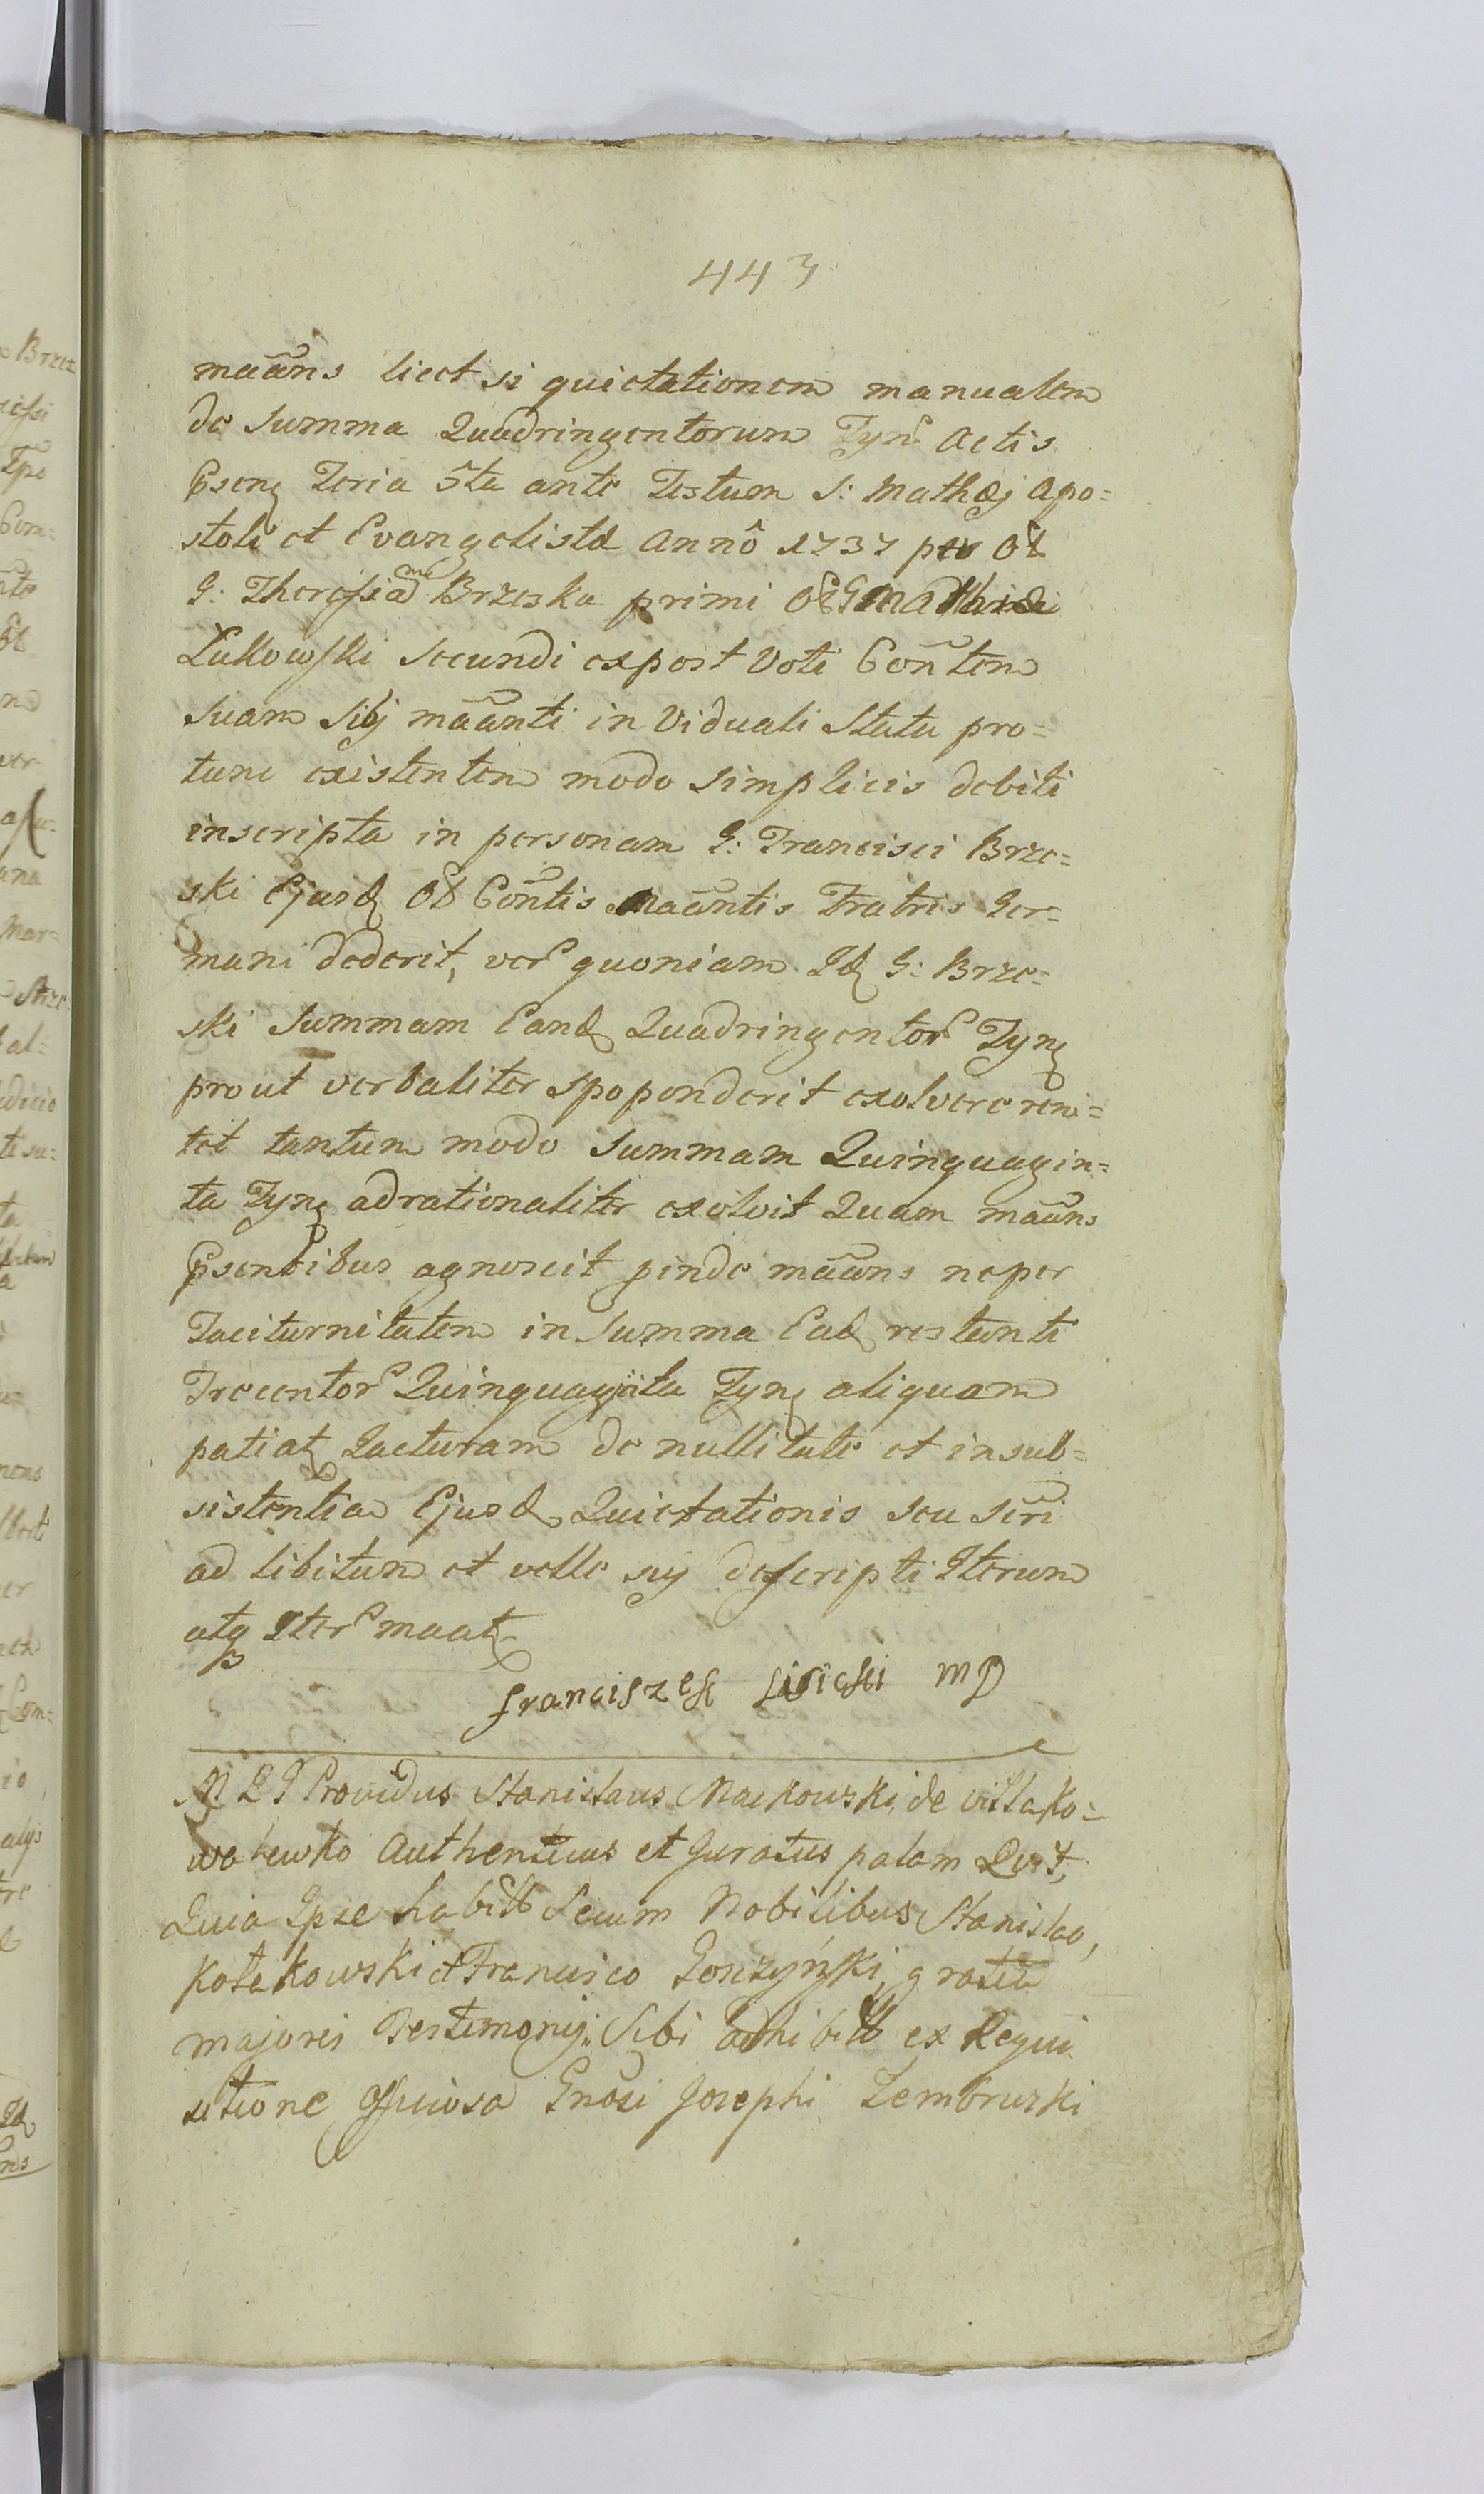 443
maãns licet si quietationem manualem
de summa Quadringentorum Tynf Actis
Psenq Feria 5ta ante Festum S: Mathæj Apo=
stoli et Evangelistæ Annô 1737 per Ol
G: Theressiam Brzeska primi Ol G Mathiæ
Łukowski secundi expost Voti Coñtem
suam Sibj mãanti in Viduali Statu pro=
tunc existentem modo simplicis debiti
inscripta in personam G: Francisci Brze=
ski Ejusd Ol Coñtis Maãntis Fratris Ger=
mani dederit, ver quoniam Id G: Brze=
ski Summam Eand Quadringentor Tynf
prout verbaliter spoponderit exolvere reni=
tet tantum modo Summam Quinquagin=
ta Tynf adrationaliter exolvit Quam maãns
Psentibus agnoscit pinde mãans neper
Taciturnitatem in Summa Ead restanti
Trecentor Quinquaginta Tynf aliquam
patiatq Jacturam de nullitate et insub=
sistentia Ejusd Quietationis seu Scri
ad libitum et velle suj descripti Iterum
atq Iter maatq
Franciszek Lisicki mp
Providus Stanislaus Maikowski de villa Ko=
walewko Authenticus et Juratus palam
Quia Ipse habitt Secum Nobilibus Stanislao,
Kołakowski et Francisco Gonzyński, gratia
majoris Testimonij Sibi adhibitt ex Requi
sitione officiosa Gnosi Josephi Zembrurski